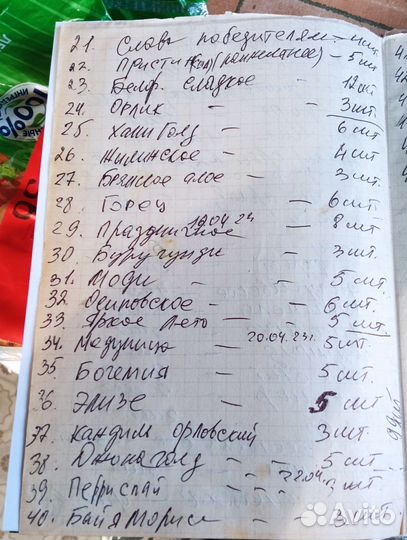 21. Слава победителям - 4шт
22. Пристин (Кол (раннелетнее) - 5шт
23. Белф. сладкое - 12шт
24. Орлик - 3шт.
25. Хани Голд - 6шт
26. Жилинское - 4шт
27. Брянское алое - 3шт.
28 Горец - 6шт
29. Праздничное 19.04 24 - 8шт
30. Бургунди - 3шт.
31. Моди - 5шт.
32. Осиповское - 6шт.
33. Яркое Лето - 5шт.
34. Медуница - 20.04.23г. 5шт.
35 Богемия - 5шт.
36. Элизе - 5шт
37. Кандиль орловский 3шт.
38. Джонаголд - 5шт.
39. Перриспай - 22.04. 3шт
40. Байя Мариса - 3шт.
Avito